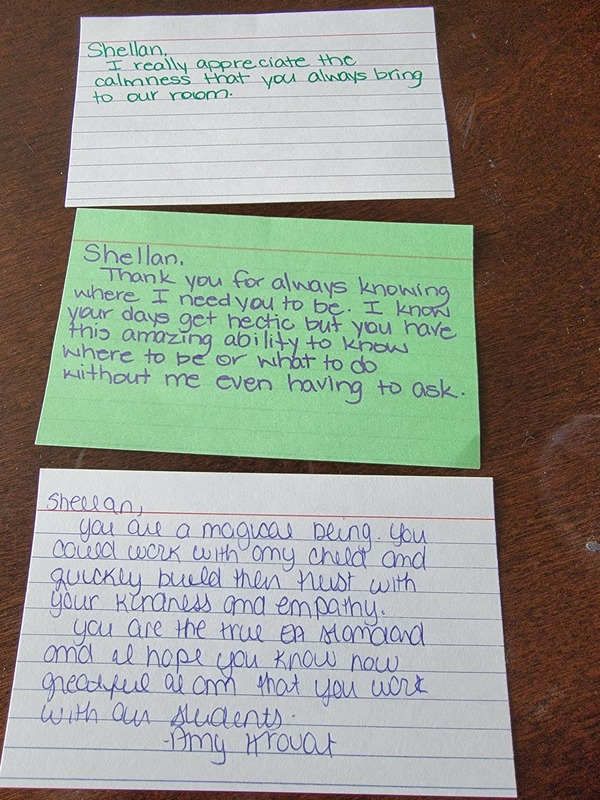 Shellan,
I really appreciate the
calmness that you always bring
to our room.
Shellan,
Thank you for always knowing
where I need you to be. I know
your days get hectic but you have
this amazing ability to know
where to be or what to do
without me even having to ask.
Shellan,
you are a magical being. you
could work with any child and
quickly build their trust with
your kindness and empathy.
you are the true EA standard
and I hope you know how
greatful I am that you work
with our students.
-Amy